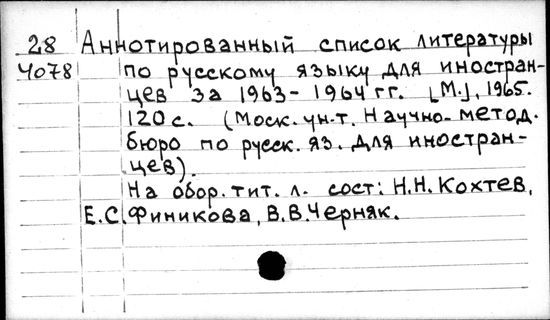 28 Аннотированный список литературы
4078 по русскому языку для иностран-
цев за 1963-1964 гг. [М.], 1965.
120 с. (Моск. ун-т. Научно-метод.
бюро по русск. яз. для иностран-
цев).
На обор. тит. л. сост: Н.Н. Кохтев,
Е.С. Финикова, В.В. Черняк.